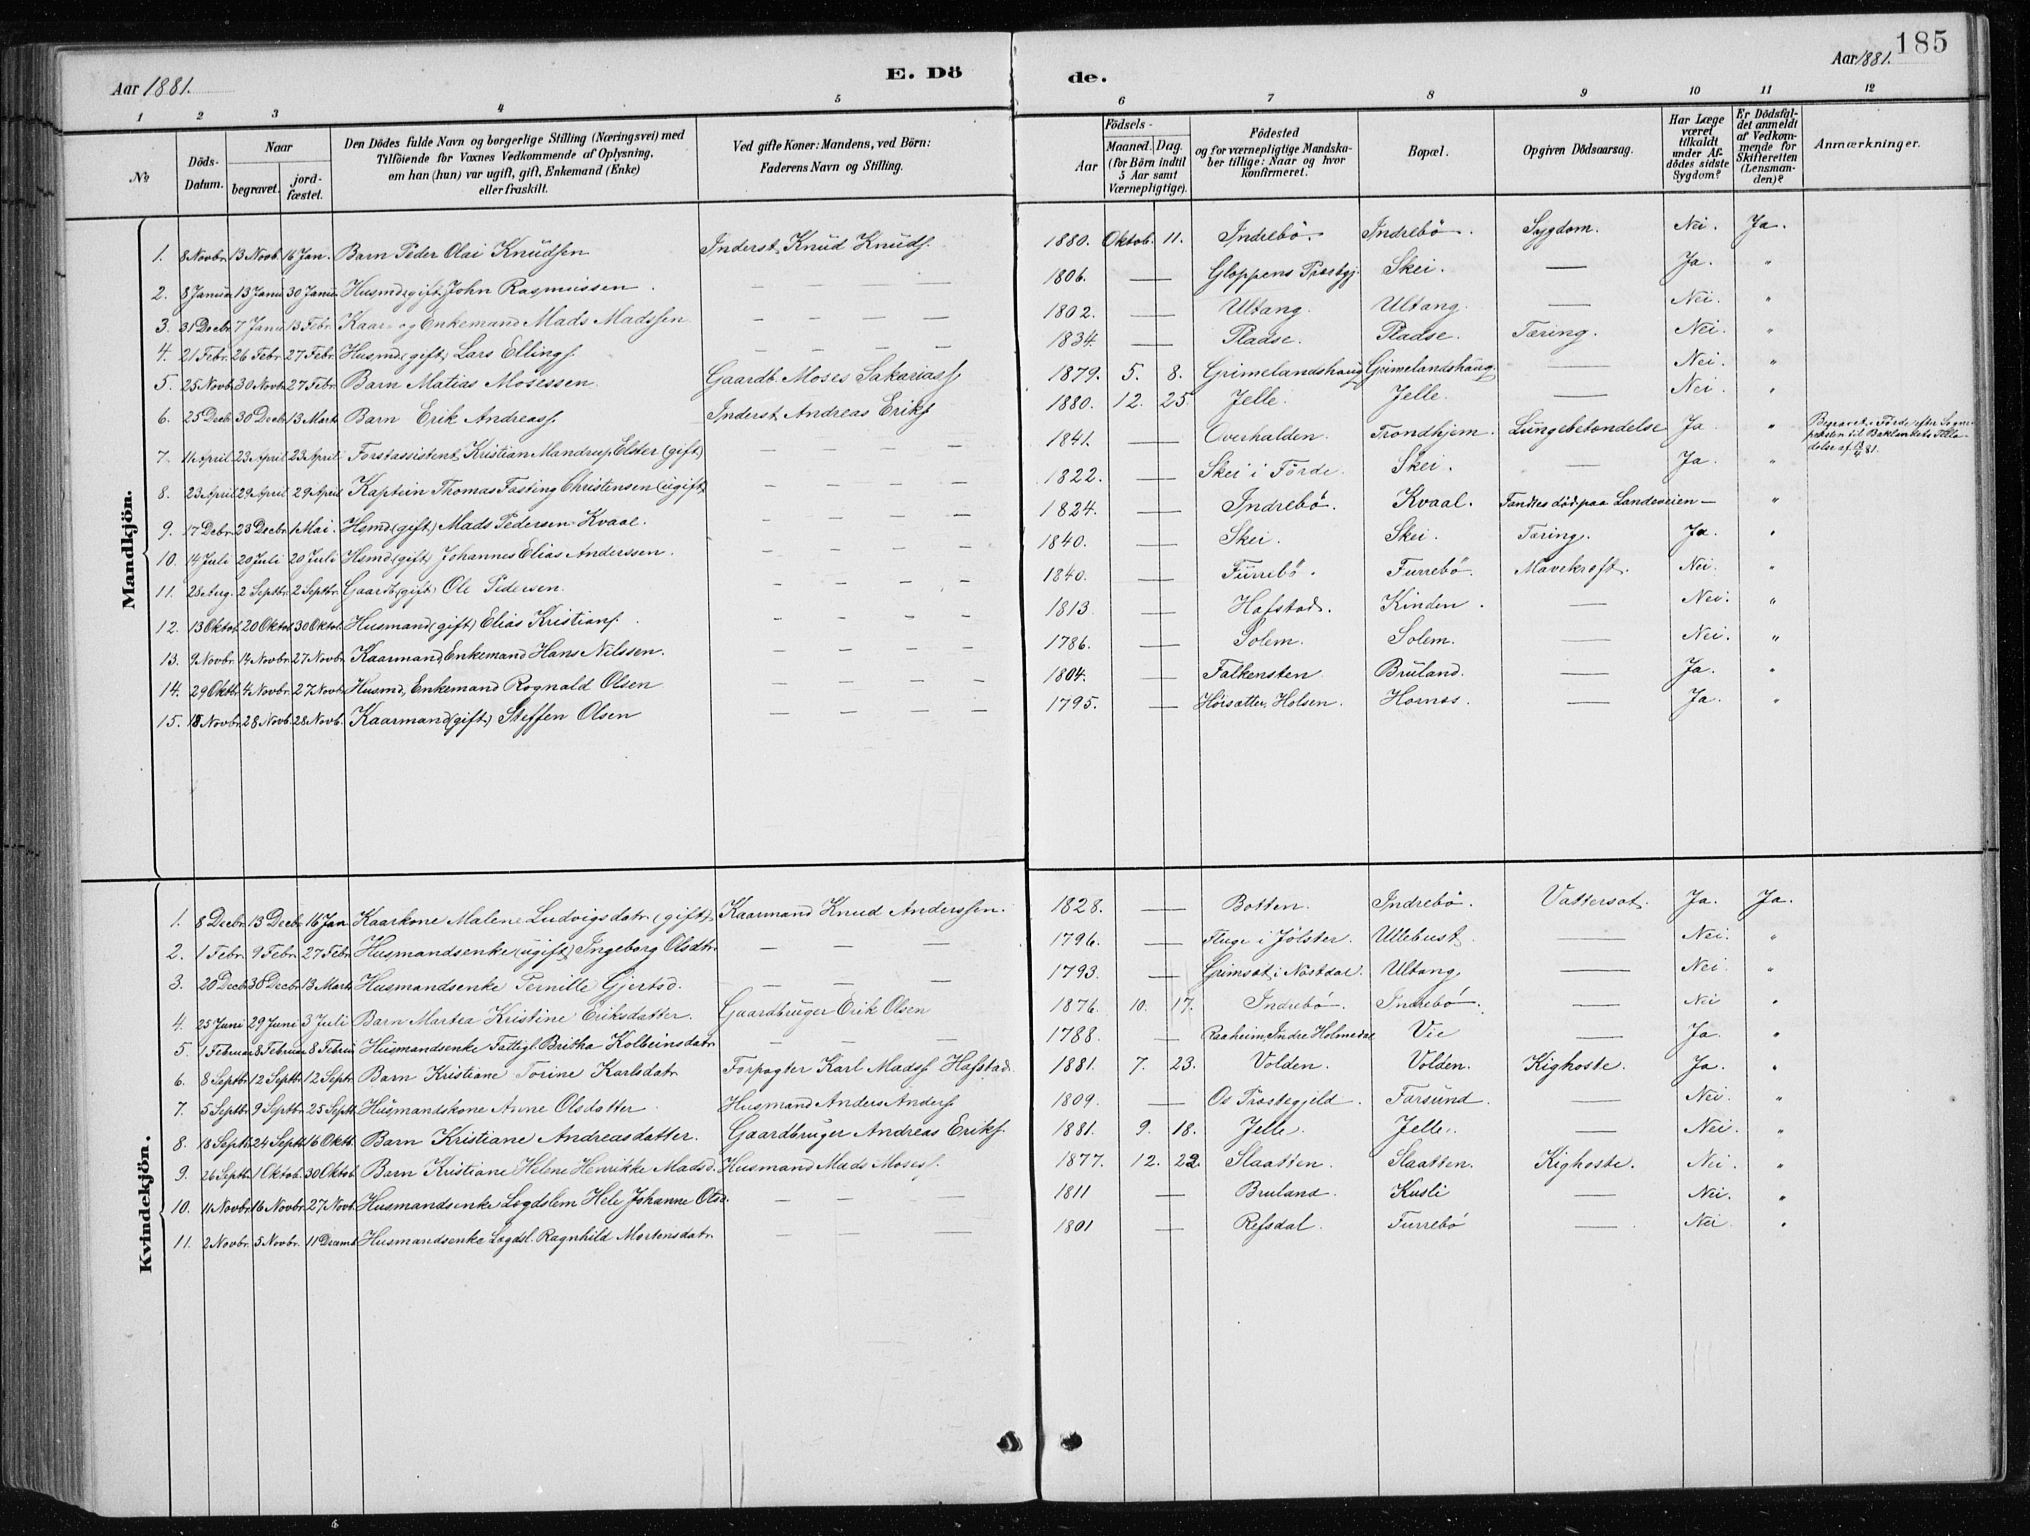 185
Aar 1881. E. Dö de. Aar 1881.
1 2 3 4 5 6 7 8 9 10 11 12
No. Döds-Datum. Naar begravet. jord-fæstet. Den Dödes fulde Navn og borgerlige Stilling (Næringsvei) med Tilföiende for Voxnes Vedkommende af Oplysning, om han (hun) var ugift, gift, Enkemand (Enke) eller fraskilt. Ved gifte Koner: Mandens, ved Börn: Faderens Navn og Stilling. Födsels- Aar Maaned. Dag. (for Börn indtil 5 Aar samt Værnepligtige). Födested og for værnepligtige Mandska-ber tillige: Naar og hvor konfirmeret. Bopæl. Opgiven Dödsaarsag. Har Læge været tilkaldt under Af-dödes sidste Sygdom? Er Dödsfal-det anmeldt af Vedkom-mende for Skifteretten (Lensman-den)? Anmærkninger.
Mandkjön.
1. 8 Novbr. 13 Novb. 16 Jan. Barn Peder Olai Knudsen Inderst Knud Knuds. 1880. Oktob. 11. Indrebö. Indrebö. Sygdom. Nei. Ja.
2. 8 Januar 13 Janu 30 Janu Husmd (gift) John Rasmussen. — — — 1806. — Gloppens Præstgj. Skei. — Ja. "
3. 31 Decbr. 7 Janu 13 Febr. Kaar- og Enkemand Mads Madssen — — — 1802. — Ultang. Ultang. — Nei. "
4. 21 Febr. 26 Febr. 27 Febr. Husmd (gift) Lars Ellings. — — — — 1834. — Pladse. Pladse. Tæring. Nei. "
5. 25 Novb. 30 Novb. 27 Febr. Barn Matias Mosessen. Gaardb. Moses Sakarias. 1879. 5. 8. Grimelandshaug Grimelandshaug — Nei. "
6. 25 Decb. 30 Decb. 13 Mart. Barn Erik Andreass. Inderst Andreas Eriks. 1880. 12. 25. Jelle. Jelle. — Nei. "
7. 11 April 23 April 23 April Forstassistent Kristian Mandrup Elster (gift) — — — 1841. — Overhalden. Trondhjem. Lungebetændelse Ja "
8. 23 April 29 April 29 April Kaptein Thomas Fasting Christensen (ugift) — — — — 1822. — Skei i Förde. Skei. — Ja. "
9. 17 Debr. 23 Decbr. 1 Mai. Hsmd (gift) Mads Pedersen Kvaal. — — — — 1824. — Indrebö. Kvaal. Fandtes död paa Landeveien — "
10. 14 Juli 20 Juli 20 Juli Hsmd (gift) Johannes Elias Anderssen. — — — — 1840. — Skei. Skei. Tæring. Ja. "
11. 28 Aug. 2 Septbr. 2 Septbr. Gaardb (gift) Ole Pedersen. — — — — 1840. — Furrebö. Furrebö. Mavekræft. Nei. "
12. 13 Oktob. 20 Oktob. 30 Oktob. Husmand (gift) Elias Kristians. — — — — 1813. — Hafstad. Kinden. — Nei. "
13. 9 Novbr. 14 Novbr. 27 Novbr. Kaarmand, Enkemand Hans Nilssen. — — — — 1786. — Solem. Solem. — Nei. "
14. 29 Oktbr. 4 Novbr. 27 Novbr. Husmd, Enkemand Rognald Olsen — — — — 1804. — Falkensten Bruland. — Ja. "
15. 18 Novbr. 28 Novb. 28 Novb. Kaarmand (gift) Steffen Olsen — — — — 1795. — Hørsætter, Holsen. Hornes. — Ja. "
Kvindekjön.
1. 8 Decbr. 13 Decbr. 16 Jan Kaarkone Malene Ludvigsdatr. (gift). Kaarmand Knud Anderssen. 1828. — Botten. Indrebö. Vattersot. Ja. Ja.
2. 1 Febr. 9 Febr. 27 Febr. Husmandsenke (ugift) Ingeborg Olsdtr. — — — 1796. — Fluge i Jölster. Ullebust. — Nei. "
3. 20 Decbr. 30 Decbr. 13 Marts Husmandsenke Pernille Gjertsd. — — — 1793. — Grimsæt i Nöstdal. Ultang — Nei "
4. 25 Juni 29 Juni 3 Juli Barn Martea Kristine Eriksdatter. Gaardbruger Erik Olsen 1876. 10. 17. Indrebö. Indrebö. — Nei "
5. 1 Februar 8 Februar 8 Februar Husmandsenke Fattigl. Britha Kolbeinsdatr. — — — 1788. — Raaheim, Indre Holmedal Vie — Ja. "
6. 8 Septbr. 12 Septbr. 12 Septr. Barn Kristiane Torine Karlsdatr. Forpagter Karl Madss. Hafstad. 1881. 7. 23. Volden. Volden. Kighoste. Ja. "
7. 5 Septbr. 9 Septbr. 25 Septb. Husmandskone Anne Olsdatter. Husmand Anders Anders. 1809. — Os Præstegjeld. Farsund. — Nei. "
8. 18 Septb. 24 Septb. 16 Oktb. Barn Kristiane Andreasdatter. Gaardbruger Andreas Eriks. 1881. 9. 18. Jelle. Jelle. — Nei. "
9. 26 Septb. 1 Oktob. 30 Oktob. Barn Kristiane Helene Henrikke Madsd. Husmand Mads Moses. 1877. 12. 22. Slaatten. Slaatten. Kighoste. Nei. "
10. 11 Novbr. 16 Novbr. 27 Novb. Husmandsenke Lægdslem Hele Johanne Olsd. — — — 1811 — Bruland. Kusli — Nei. "
11. 2 Novbr. 5 Novbr. 11 Decemb. Husmandsenke Lægdsl. Ragnhild Mortensdatr. — — — 1801 — Refsdal. Furrebö — Nei. "